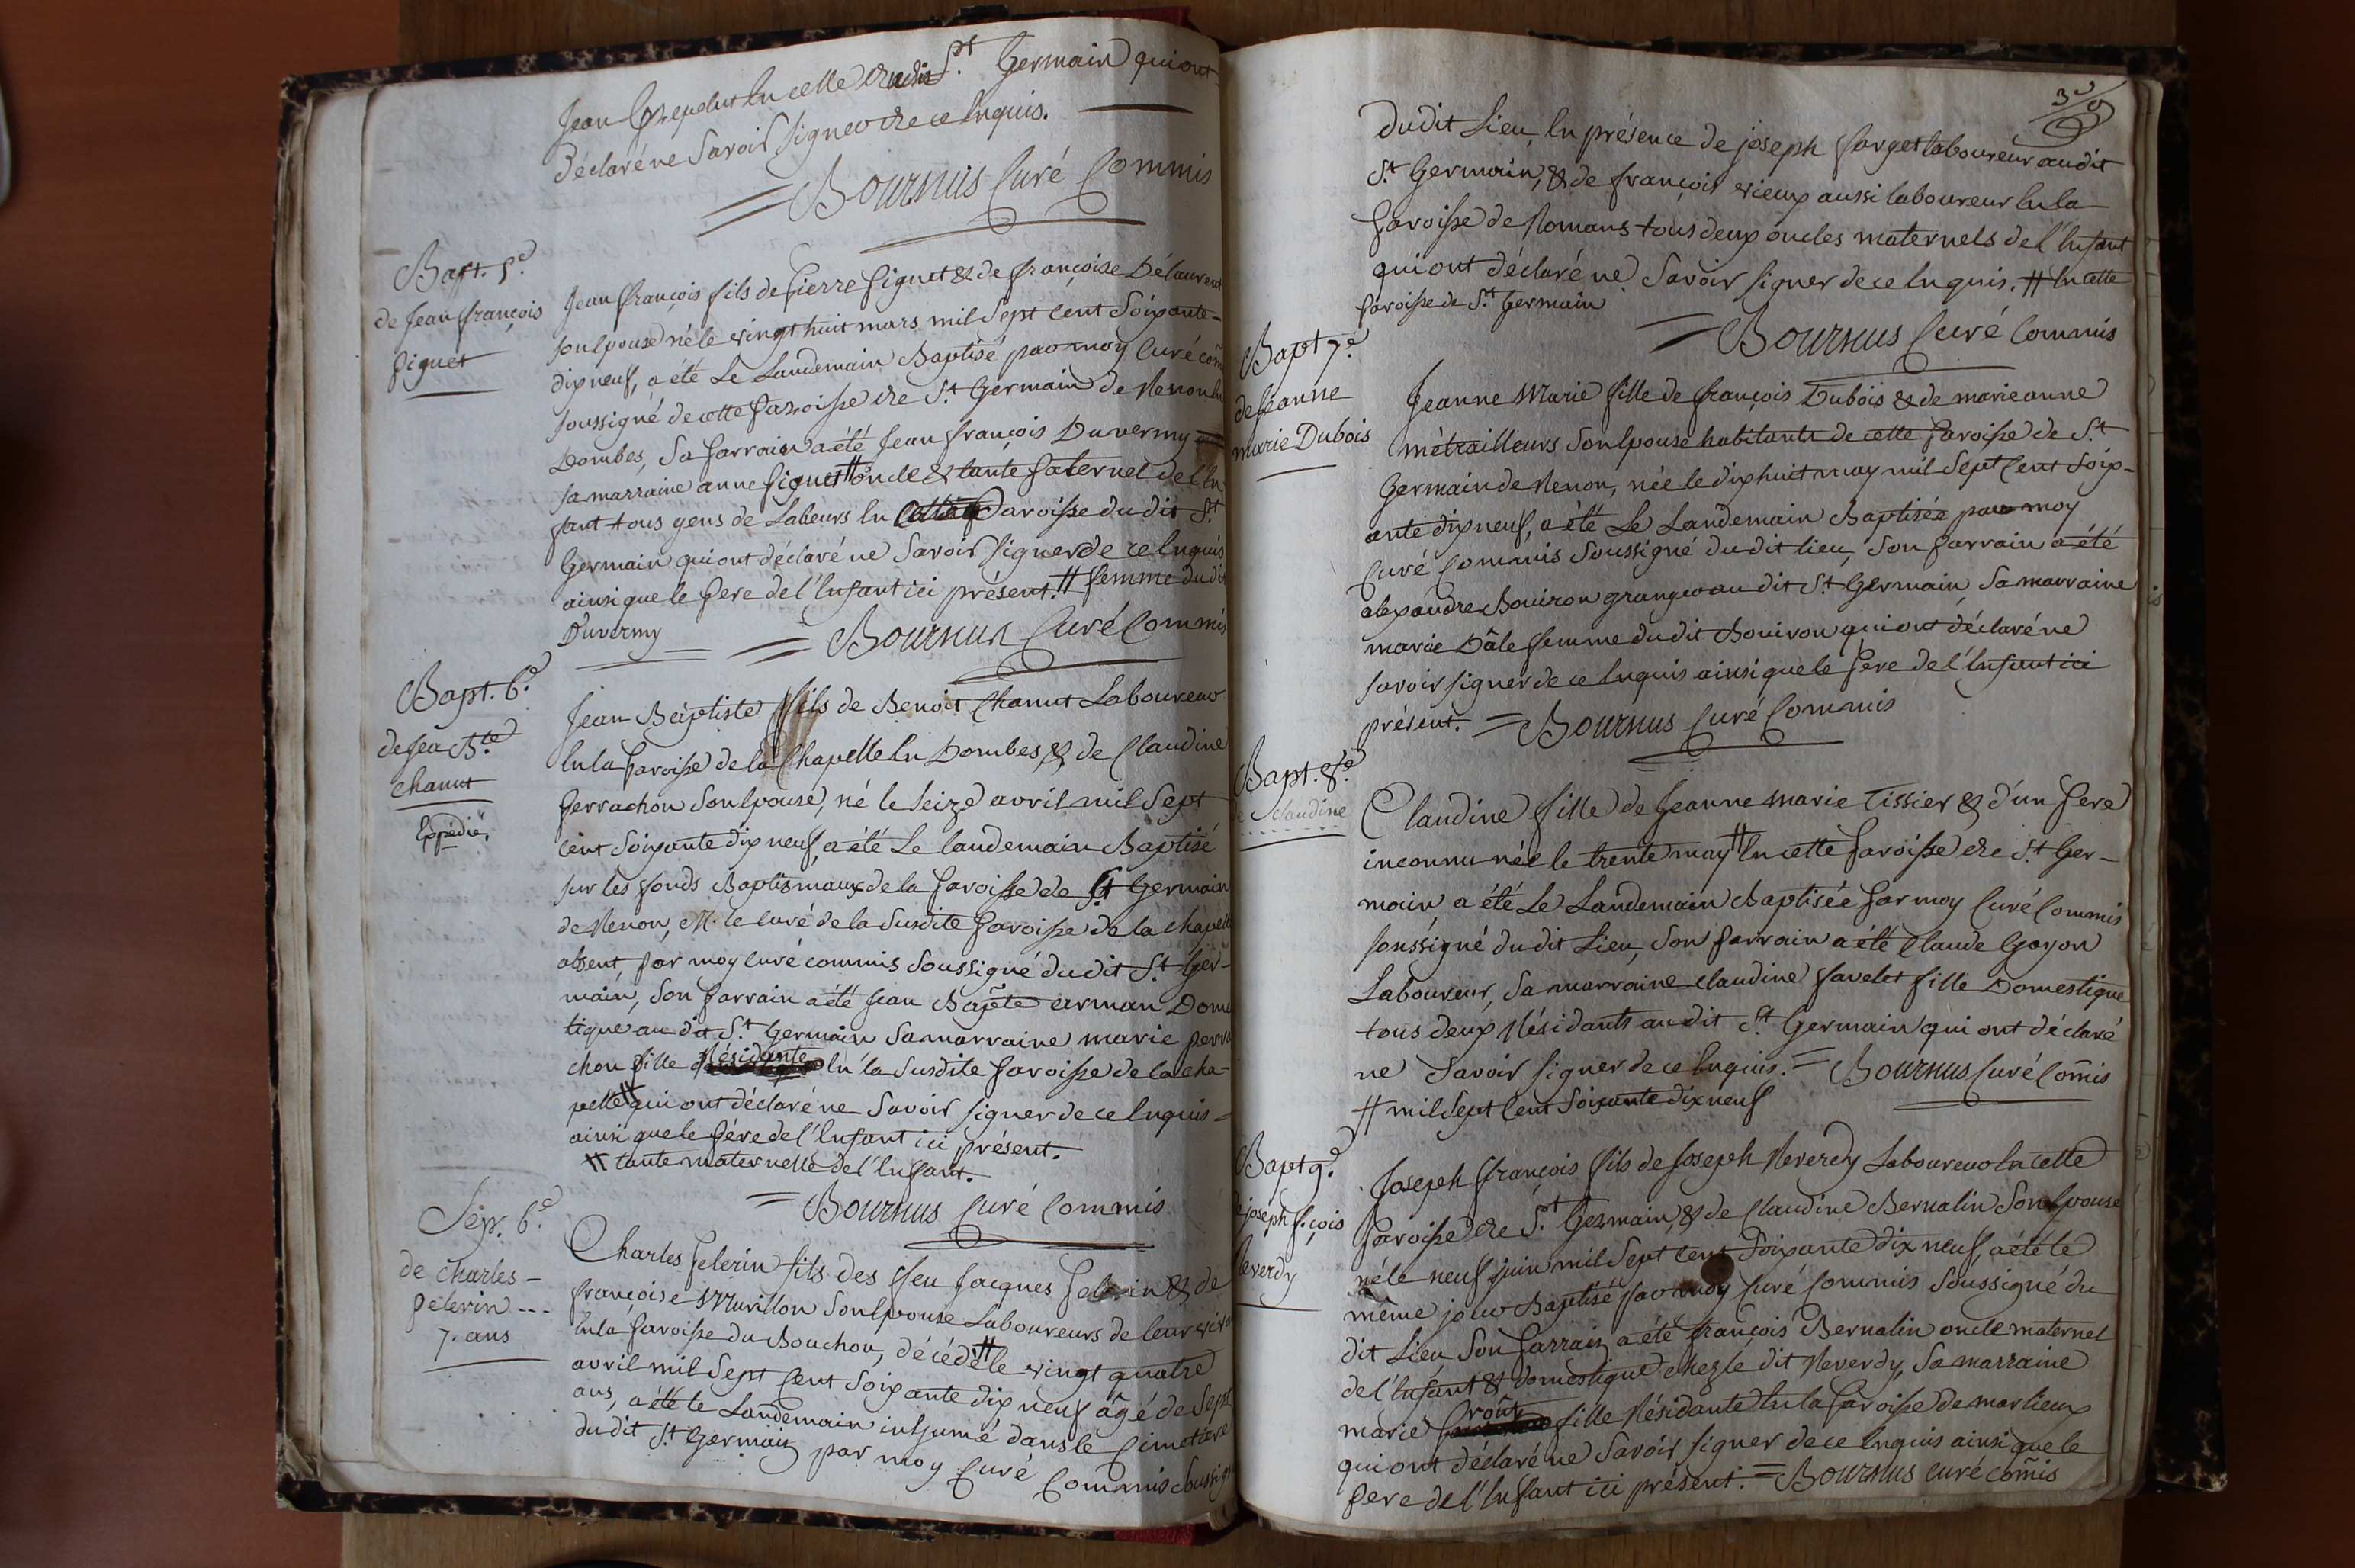 Jean en cette St. Germain qui ont
Déclaré ne Savoir Signer de ce Enquis.
= Bournus Curé Commis
Bapt. 5.e
de Jean françois
figuet
Jean françois fils de Pierre figuet & de françoise Délaurent
son Epouse né le vingt huit mars mil Sept Cent Soixante=
dix neuf, a été Le Landemain Baptisé par moy Curé com
soussigné de cette Paroisse de St. Germain de Renon En
Dombes, Sa Parrain a été Jean françois Duvermy
sa marraine anne figuet # oncle & tante Paternel de l'En
fant tous gens de Labeurs En Paroisse du dit St.
Germain qui ont déclaré ne Savoir Signer de ce Enquis
ainsi que le Pere de l'Enfant ici présent. # femme dudit
Duvermy = Bournus Curé Commis
Bapt. 6.e
de Jea B.te
Chanut
Expédié,
Jean Baptiste fils de Benoit Chanut Laboureur
En la Paroisse de la Chapelle En Dombes, & de Claudine
Perrachon Son Epouse, né le Seize avril mil Sept
Cent Soixante dix neuf, a été Le landemain Baptisé
sur les fonds Baptismaux de la Paroisse de St Germain
de Renon, M. le Curé de la Susdite Paroisse de la Chapelle
absent, Par moy Curé commis Soussigné du dit St. Ger-
main, Son Parrain a été Jean Bapte arman Domes
tique au dit St. Germain Sa marraine marie perra
chon fille Résidante En la Susdite Paroisse de la Cha-
pelle # qui ont déclaré ne Savoir Signer de ce Enquis
ainsi que le Pére de l'Enfant ici présent.
# tante maternelle de l'Enfant.
= Bournus Curé Commis
Sep. 6.e
de Charles -
pelerin ---
7. ans
Charles Pelerin fils des feu Jacques Pelerin & de
françoise Murillon Son Epouse Laboureurs de leur viva
En la Paroisse du Bouchou, décédé # le vingt quatre
avril mil Sept Cent Soixante dix neuf âgé de Sept
ans, a été le Landemain inhumé dans le Cimetiere
du dit St. Germain par moy Curé Commis Soussigné
du dit Lieu, En présence de joseph farget laboureur audit
St. Germain, & de françois vieux aussi laboureur En la
Paroisse de Romans tous deux oncles maternels de l'Enfant
qui ont déclaré ne Savoir Signer de ce Enquis. # En cette
Paroisse de St. Germain
= Bournus Curé Commis
Bapt 7.e
de Jeanne
marie Dubois
Jeanne Marie fille de françois Dubois & de marieanne
métrailleurs Son Epouse habitants de cette Paroisse de St.
Germain de Renon, née le dix huit may mil Sept Cent Soix-
ante dix neuf, a été Le Landemain Baptisée par moy
Curé Commis Soussigné du dit lieu, Son Parrain a été
alexandre Bouiron granger au dit St. Germain, Sa marraine
marie Dâle femme du dit Bouiron qui ont déclaré ne
savoir signer de ce Enquis ainsi que le Pere de l'Enfant ici
présent. = Bournus Curé Commis
Bapt. 8.e
de Claudine
Claudine fille de Jeanne Marie Tissier & d'un Pere
inconnu née le trente may # En cette Paroisse de St. Ger-
main a été Le Landemain Baptisée Par moy Curé Commis
soussigné du dit Lieu, Son Parrain a été Claude Goyon
Laboureur, Sa marraine claudine favelet fille Domestique
tous deux Résidants au dit St. Germain qui ont déclaré
ne Savoir Signer de ce Enquis. = Bournus Curé Com̃is
# mil Sept Cent Soixante dix neuf
Bapt 9.e
de joseph f.çois
Reverdy
Joseph françois fils de Joseph Reverdy Laboureur En cette
Paroisse de St. Germain, & de Claudine Bernalin Son Epouse
né le neuf juin mil Sept Cent Soixante dix neuf, a été le
même jour Baptisé par moy Curé Commis Soussigné du
dit Lieu Son Parrain a été françois Bernalin oncle maternel
de l'Enfant & domestique chez le dit Reverdy, Sa marraine
marie fille Résidante En la Paroisse de marlieux
qui ont déclaré ne Savoir Signer de ce Enquis ainsi que le
Pere de l'Enfant ici présent. = Bournus Curé com̃is